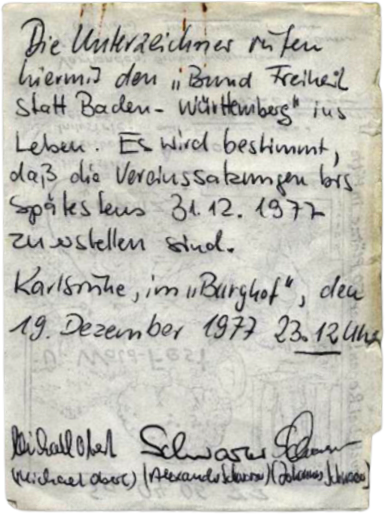 Die Unterzeichner rufen
hiermit den „Bund Freiheit
statt Baden-Württemberg" ins
Leben. Es wird bestimmt,
daß die Vereinssatzungen bis
spätestens 31.12.1977
zu erstellen sind.
Karlsruhe, im „Burghof", den
19. Dezember 1977 23.12 Uhr
Michael Obert Schwarzer
(Michael Obert) (Alexander Schwarzer) (Johannes